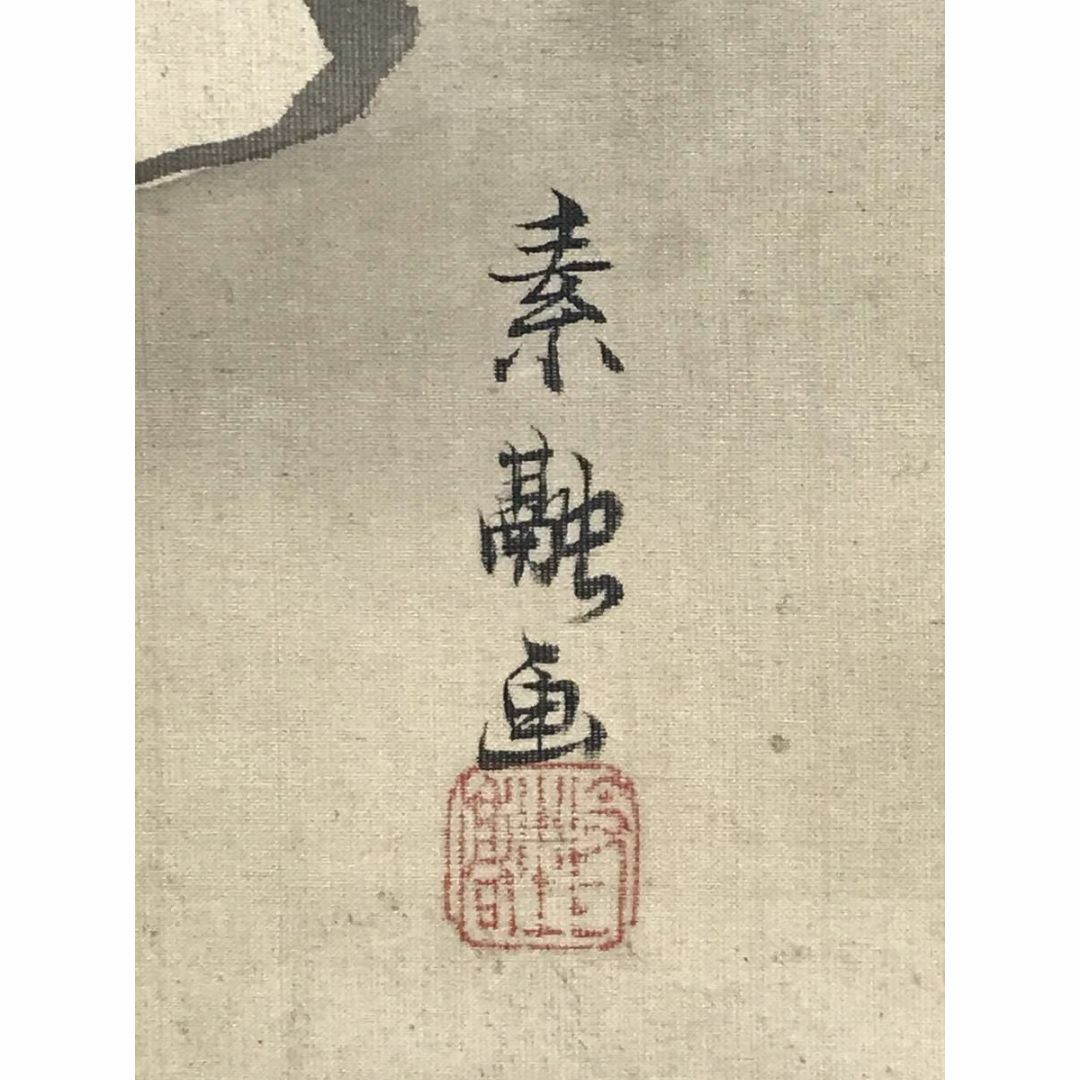 素融画